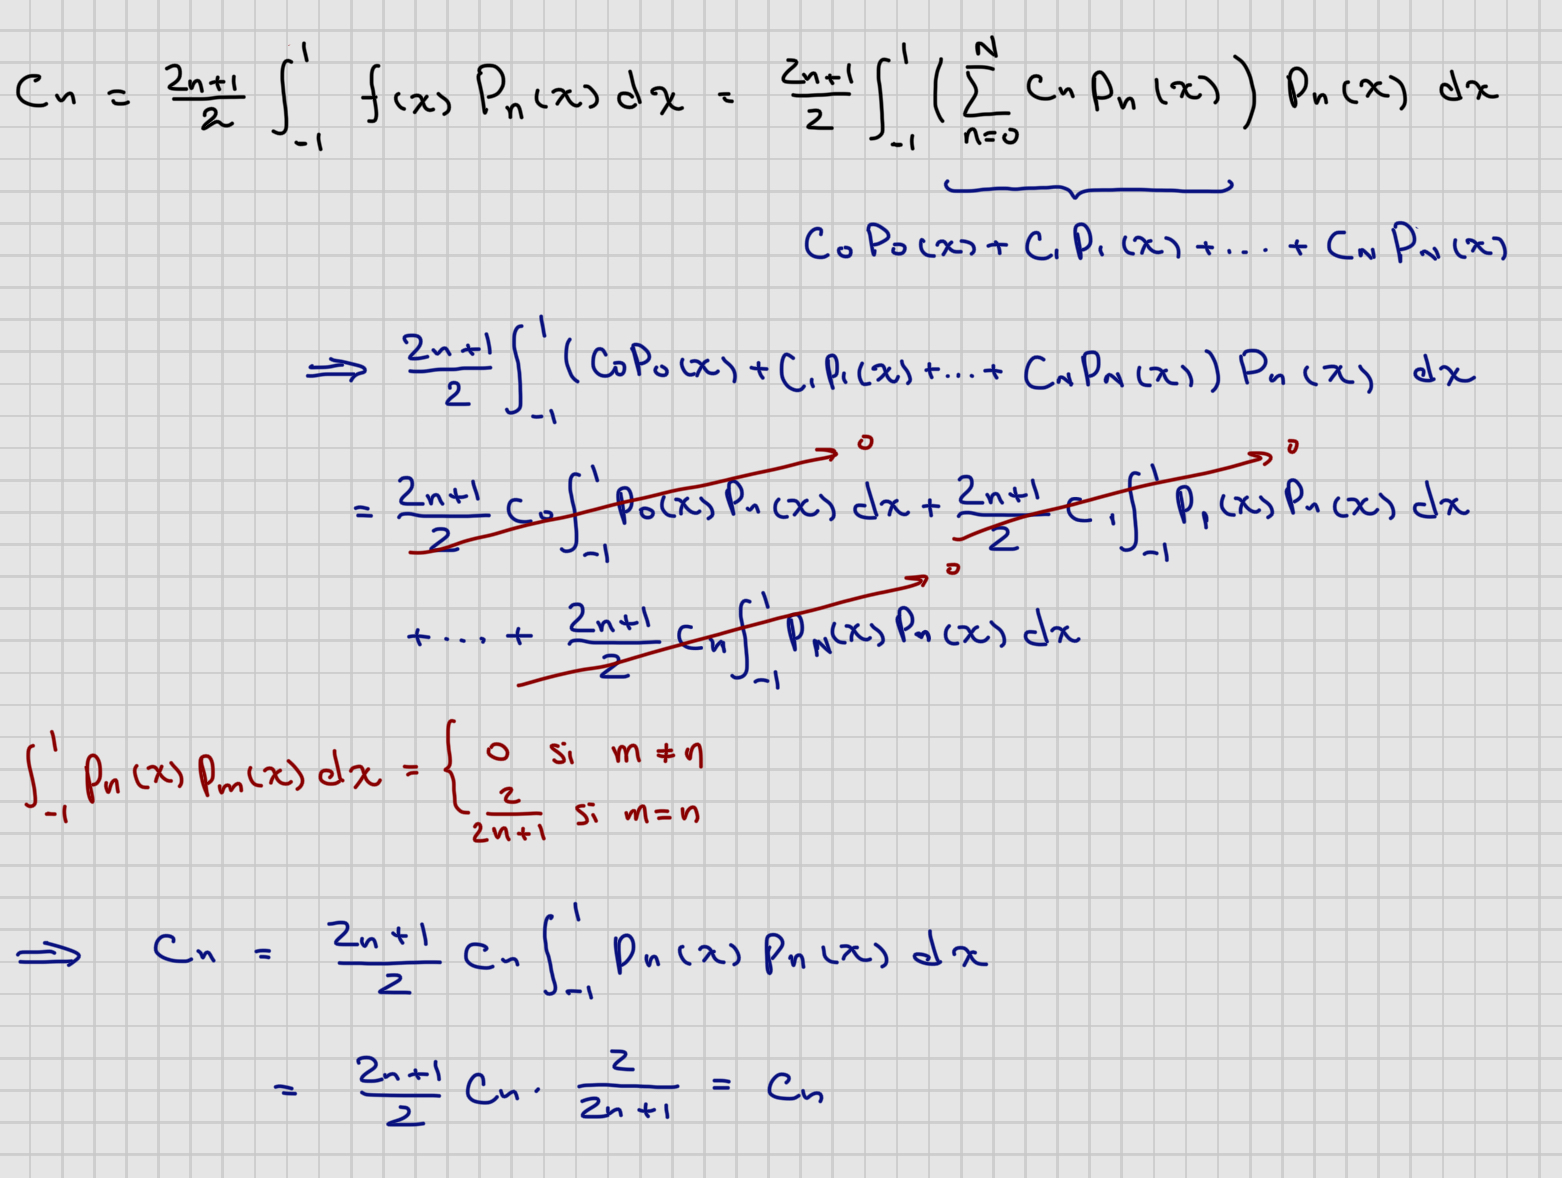 Cn = \frac{2n+1}{2} \int_{-1}^{1} f(x) Pn(x) dx = \frac{2n+1}{2} \int_{-1}^{1} ( \sum_{n=0}^{N} Cn Pn(x) ) Pn(x) dx
C0 P0(x) + C1 P1(x) + ... + CN PN(x)
⟹ \frac{2n+1}{2} \int_{-1}^{1} ( C0 P0(x) + C1 P1(x) + ... + CN PN(x) ) Pn(x) dx
= \frac{2n+1}{2} C0 \int_{-1}^{1} P0(x) Pn(x) dx → 0 + \frac{2n+1}{2} C1 \int_{-1}^{1} P1(x) Pn(x) dx → 0
+ ... + \frac{2n+1}{2} Cn \int_{-1}^{1} PN(x) Pn(x) dx → 0
\int_{-1}^{1} Pn(x) Pm(x) dx = { 0 si m ≠ n
\frac{2}{2n+1} si m = n
⟹ Cn = \frac{2n+1}{2} Cn \int_{-1}^{1} Pn(x) Pn(x) dx
= \frac{2n+1}{2} Cn · \frac{2}{2n+1} = Cn